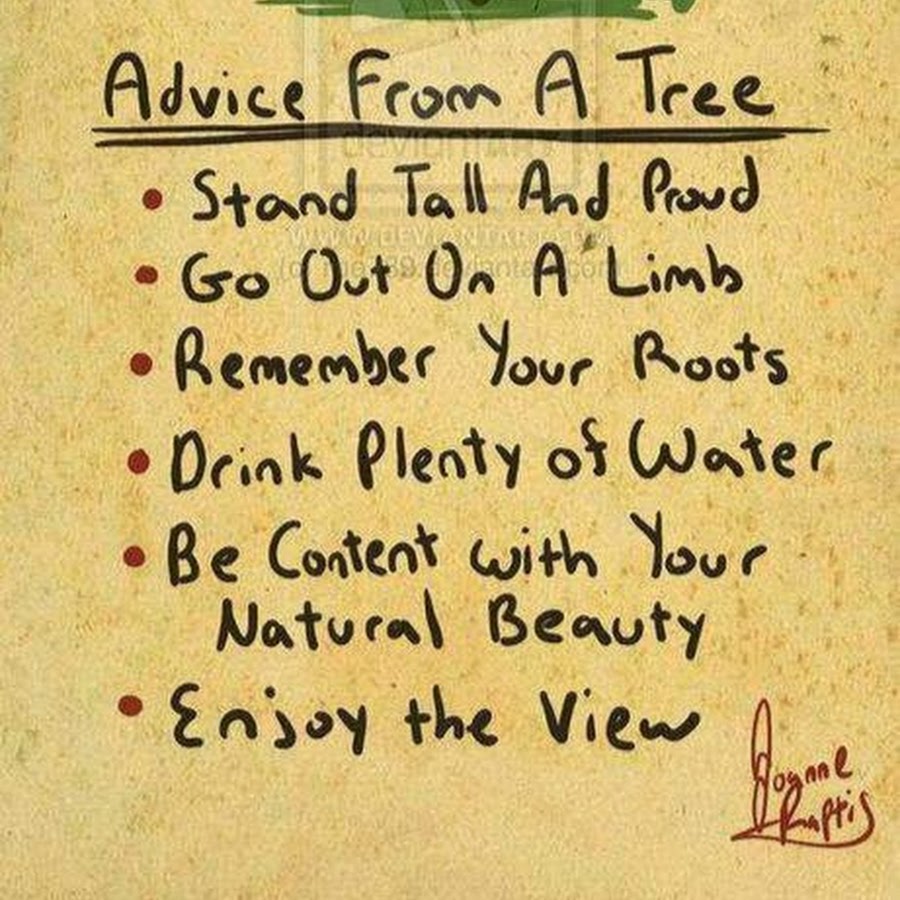 Advice From A Tree
deviantART
• Stand Tall And Proud
WWW.DEVIANTART.COM
• Go Out On A Limb
• Remember Your Roots
• Drink Plenty of Water
• Be Content with Your
Natural Beauty
• Enjoy the View
Joanne
Raptis